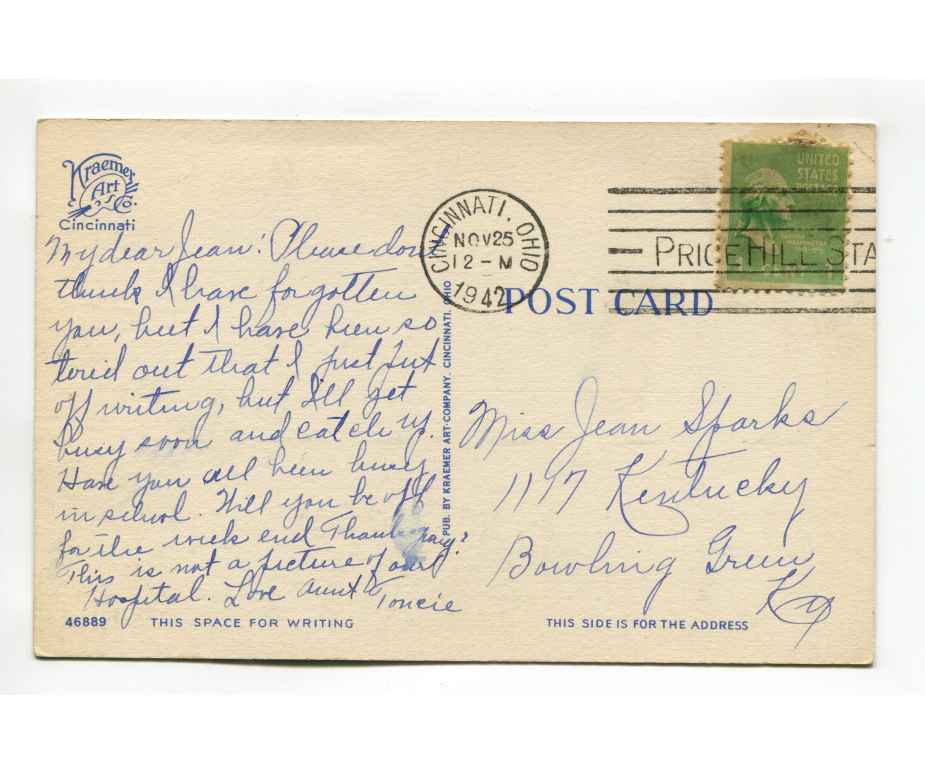 Kraemer
Art
Co.
Cincinnati
My dear Jean: Please don't
think I have forgotten
you, but I have been so
tired out that I just put
off writing, but I'll get
busy soon and catch up.
Have you all been busy
in school. Will you be off
for the week end Thanksgiving?
This is not a picture of our
Hospital. Love Aunt Toncie
46889 THIS SPACE FOR WRITING
PUB. BY KRAEMER ART COMPANY, CINCINNATI, OHIO
CINCINNATI, OHIO
NOV 25
12-M
1942
UNITED
STATES
WASHINGTON
PRICE HILL STA
POST CARD
Miss Jean Sparks
1197 Kentucky
Bowling Green
Ky
THIS SIDE IS FOR THE ADDRESS